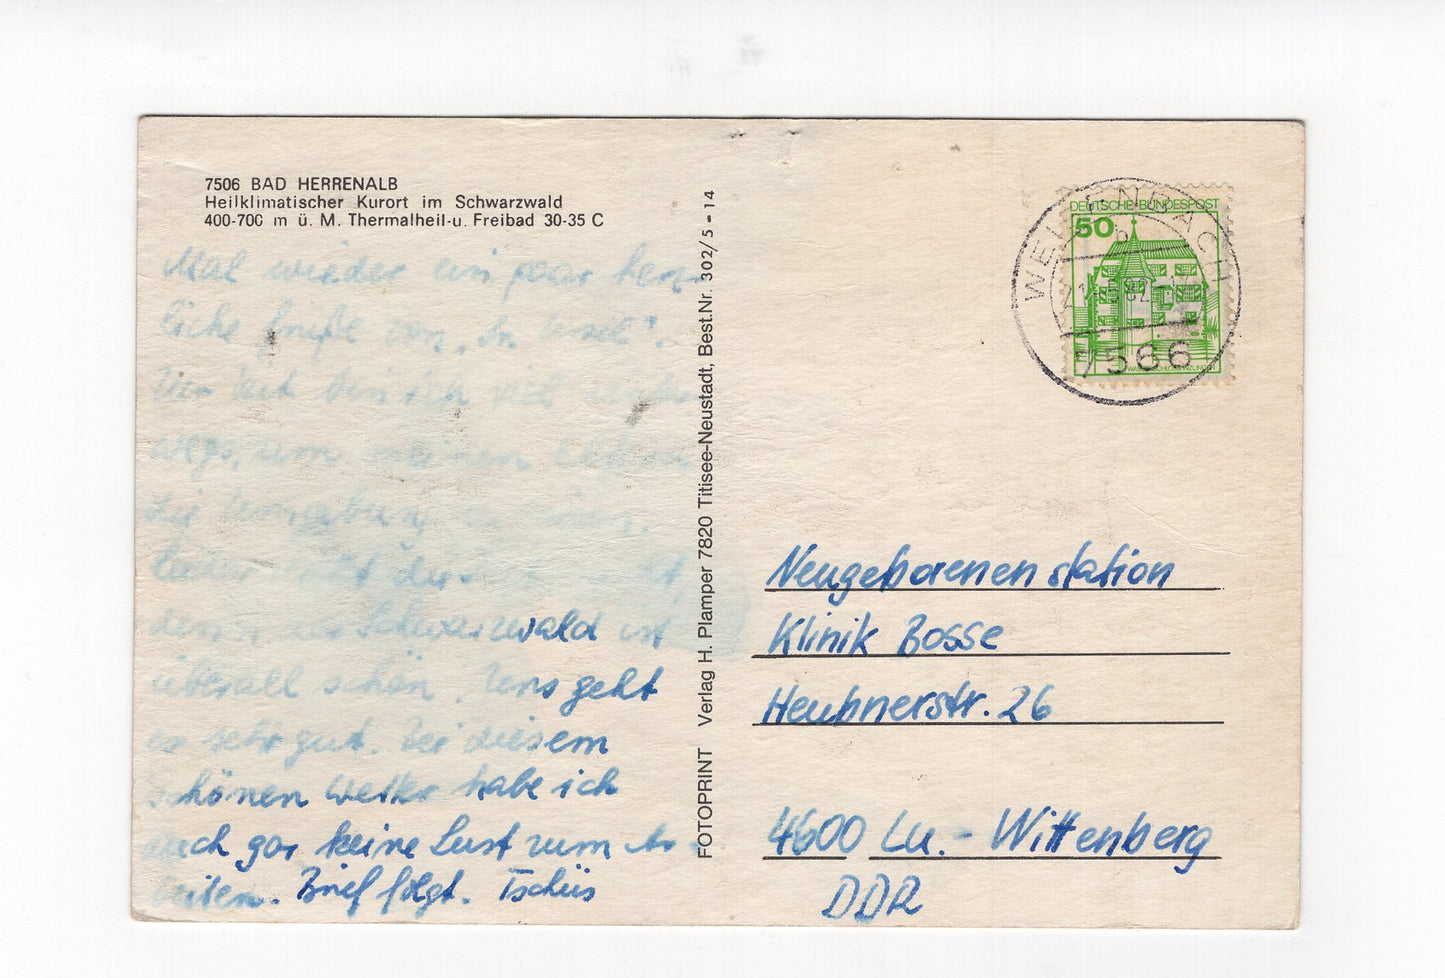 7506 BAD HERRENALB
Heilklimatischer Kurort im Schwarzwald
400-700 m ü. M. Thermalheil-u. Freibad 30-35 C
Mal wieder ein paar herz-
liche Grüße
wegs, um meinen
die Umgebung zu
leider
denn Schwarzwald ist
überall schön. Uns geht
es sehr gut. Bei diesem
schönen Wetter habe ich
auch gar keine Lust zum Ar-
beiten. Brief folgt. Tschüs
FOTOPRINT Verlag H. Plamper 7820 Titisee-Neustadt, Best.Nr. 302/5-14
DEUTSCHE BUNDESPOST
50
7566
Neugeborenenstation
Klinik Bosse
Heubnerstr. 26
4600 Lu.-Wittenberg
DDR